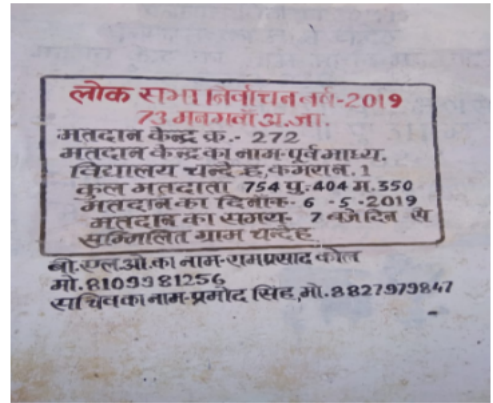 लोक सभा निर्वाचन वर्ष-2019
73 मनगवाँ अ.जा.
मतदान केन्द्र क्र.- 272
मतदान केन्द्र का नाम-पूर्व माध्य.
विद्यालय चन्देह, कमरा न. 1
कुल मतदाता 754 पु. 404 म. 350
मतदान का दिनाँक- 6 -5 -2019
मतदान का समय- 7 बजे दिन से
सम्मिलित ग्राम चन्देह
बी.एल.ओ. का नाम-रामप्रसाद कोल
मो. 8109981256
सचिव का नाम-प्रमोद सिंह, मो. 8827979847